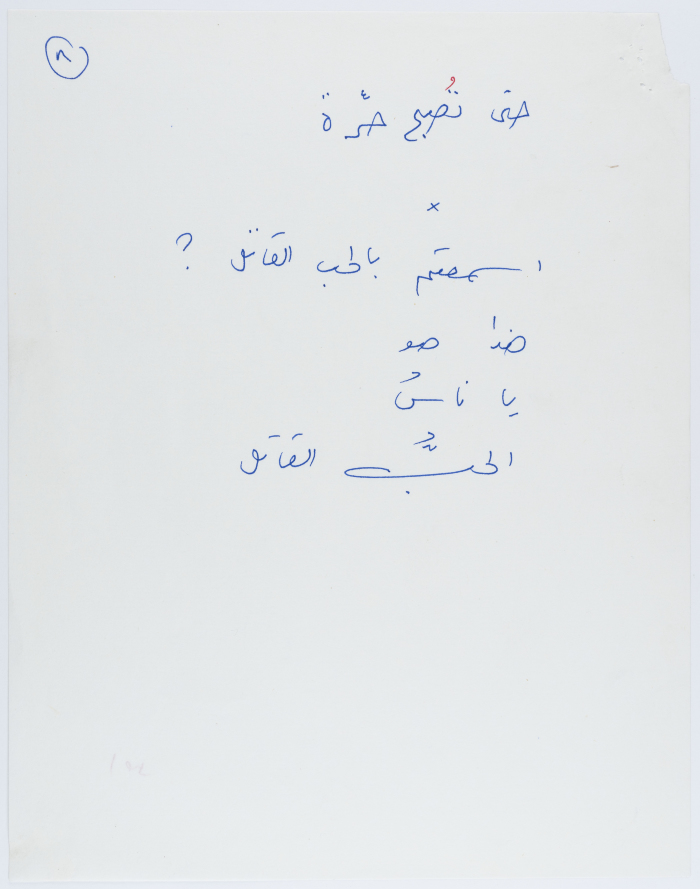 ٨
حتى تُصبح حرّة
×
أسمعتم بالحب القاتل ?
هذا هو
يا ناسُ
الحبُّ القاتل